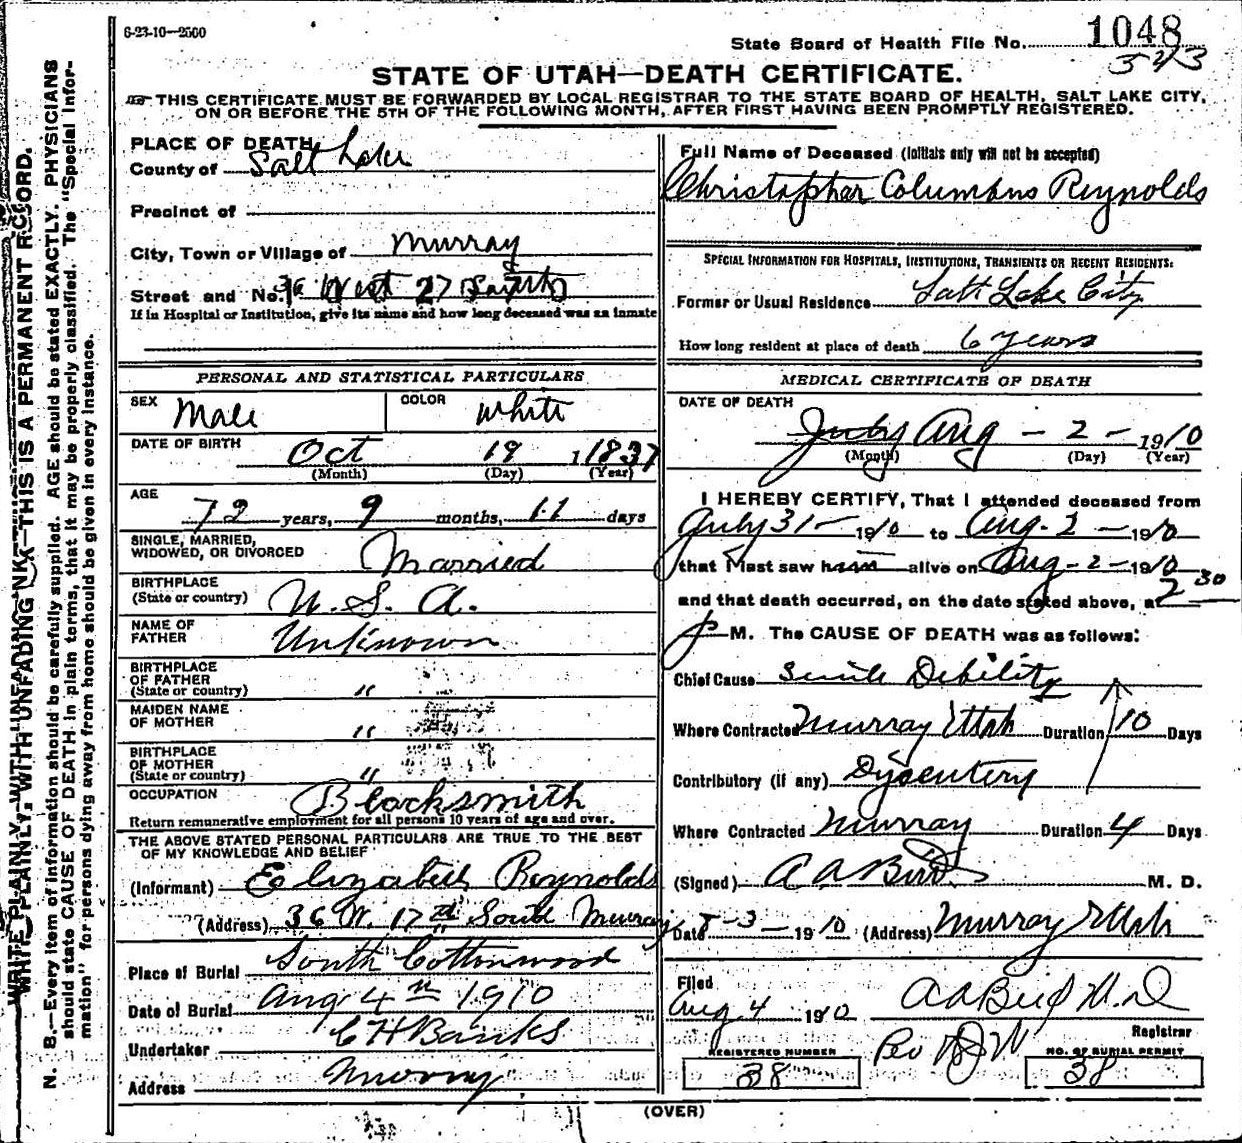 6-23-10-2500
State Board of Health File No. 1048
STATE OF UTAH—DEATH CERTIFICATE.
THIS CERTIFICATE MUST BE FORWARDED BY LOCAL REGISTRAR TO THE STATE BOARD OF HEALTH, SALT LAKE CITY,
ON OR BEFORE THE 5TH OF THE FOLLOWING MONTH, AFTER FIRST HAVING BEEN PROMPTLY REGISTERED.
WRITE PLAINLY, WITH UNFADING INK—THIS IS A PERMANENT RECORD.
N. B.—Every item of information should be carefully supplied. AGE should be stated EXACTLY. PHYSICIANS
should state CAUSE OF DEATH in plain terms, that it may be properly classified. The "Special Infor-
mation" for persons dying away from home should be given in every instance.
PLACE OF DEATH
County of Salt Lake
Precinct of
City, Town or Village of Murray
Street and No. West
If in Hospital or Institution, give its name and how long deceased was an inmate
PERSONAL AND STATISTICAL PARTICULARS
SEX Male COLOR White
DATE OF BIRTH Oct 19 1837
(Month) (Day) (Year)
AGE
72 years, 9 months, 11 days
SINGLE, MARRIED,
WIDOWED, OR DIVORCED Married
BIRTHPLACE
(State or country) U. S. A.
NAME OF
FATHER Unknown
BIRTHPLACE
OF FATHER
(State or country) "
MAIDEN NAME
OF MOTHER "
BIRTHPLACE
OF MOTHER
(State or country) "
OCCUPATION Blacksmith
Return remunerative employment for all persons 10 years of age and over.
THE ABOVE STATED PERSONAL PARTICULARS ARE TRUE TO THE BEST
OF MY KNOWLEDGE AND BELIEF
(Informant) Elizabeth Reynolds
(Address) 36 W. 17th South Murray
Place of Burial South Cottonwood
Date of Burial Aug 4th 1910
Undertaker C H Banks
Address Murray
Full Name of Deceased (Initials only will not be accepted)
Christopher Columbus Reynolds
SPECIAL INFORMATION FOR HOSPITALS, INSTITUTIONS, TRANSIENTS OR RECENT RESIDENTS:
Former or Usual Residence Salt Lake City
How long resident at place of death 6 years
MEDICAL CERTIFICATE OF DEATH
DATE OF DEATH
July Aug - 2 - 1910
(Month) (Day) (Year)
I HEREBY CERTIFY, That I attended deceased from
July 31 - 1910 to Aug. 2 - 1910
that I last saw him alive on Aug - 2 - 1910
and that death occurred, on the date stated above, at 2 30
P M. The CAUSE OF DEATH was as follows:
Chief Cause Senile Debility
Where Contracted Murray Utah Duration 10 Days
Contributory (if any) Dysentery
Where Contracted Murray Duration 4 Days
(Signed) A A Bird M. D.
Date 8-3-1910 (Address) Murray Utah
Filed
Aug 4 1910 A A Bird M.D
Registrar
REGISTERED NUMBER
38
NO. OF BURIAL PERMIT
38
(OVER)